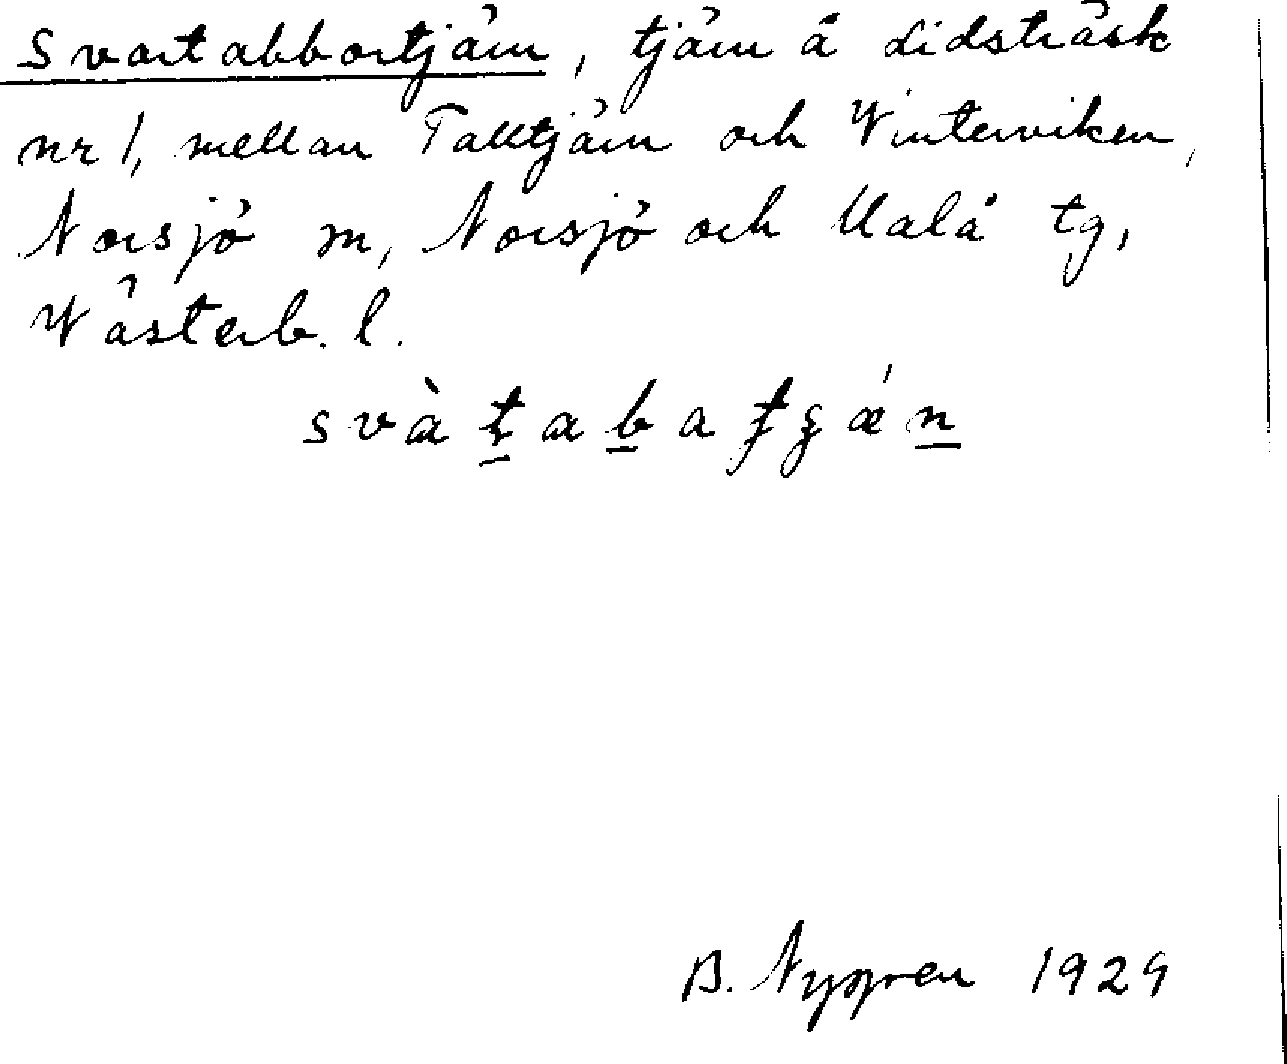 Svartabbortjärn, tjärn å Lidsträsk
nr 1, mellan Talltjärn och Winterviken,
Norsjö sn, Norsjö och Malå tg,
Wästerb. l.
svàt̲ab̲atʒǽn̲
B. Nygren 1929